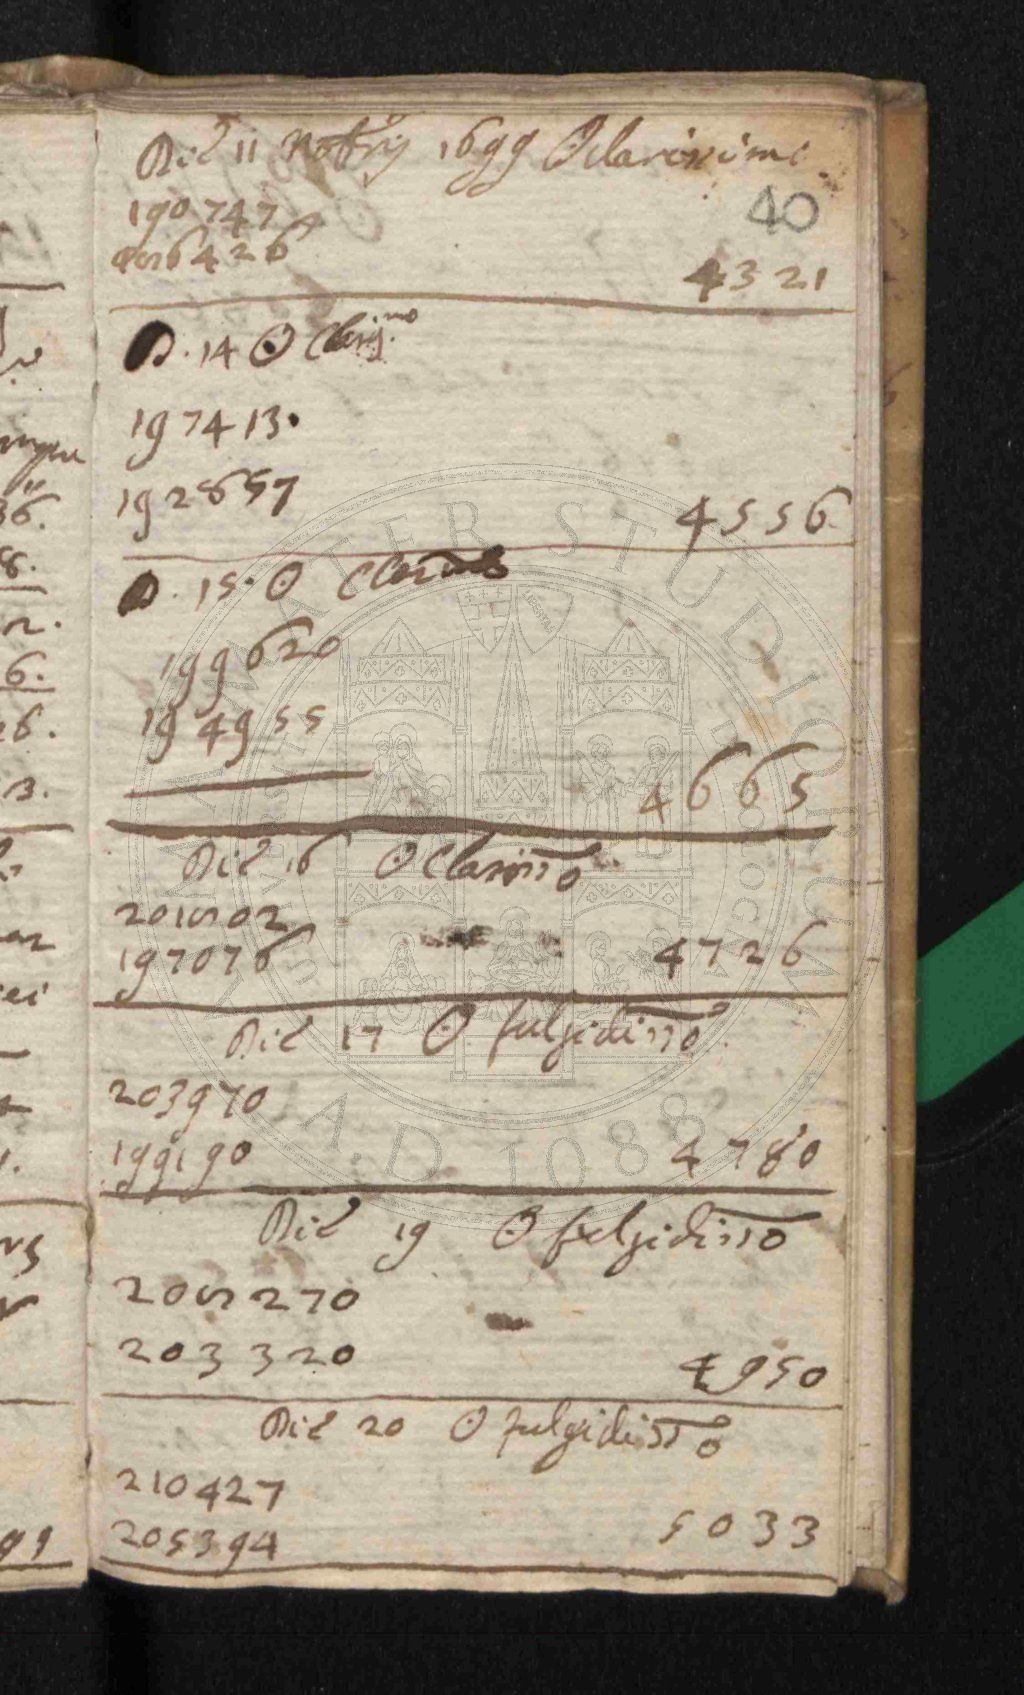 Die 11 Novbrij 1699 ☉ clarissime
40
190747
186426 4321
D. 14 ☉ Claris.mo
197413.
192857 4556.
D. 15. ☉
199620
194955
4665
Die 16 ☉ Clarisso
201802
197076 4726
Die 17 ☉ fulgidisso
203970
199190 4780
Die 19 ☉ fulgidisso
208270
203320 4950
Die 20 ☉ fulgidisso
210427
205394 5033
ALMA MATER STUDIORUM
A.D. 1088